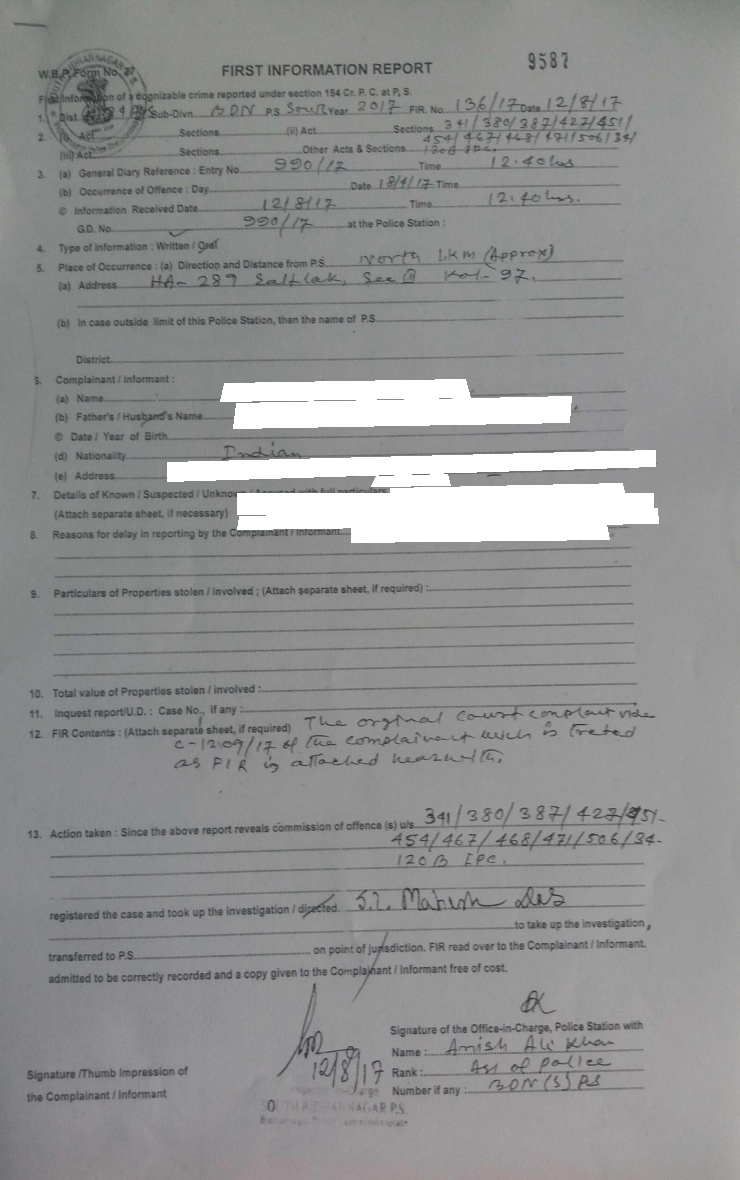 9587
W.B.P. Form No.
FIRST INFORMATION REPORT
First Information of a cognizable crime reported under section 154 Cr. P. C. at P, S.
1. Dist. Sub-Divn. BDN P.S South Year 2017 FIR. No. 136/17 Date 12/8/17
2. (i) Act Sections (ii) Act Sections 341/380/387/427/451/
454/467/468/471/506/34/
(iii) Act Sections Other Acts & Sections 120B IPC.
3. (a) General Diary Reference : Entry No. 990/17 Time 12.40 hrs
(b) Occurrence of Offence : Day Date 18/4/17 Time
© Information Received Date 12/8/17 Time 12.40 hrs.
G.D. No. 990/17 at the Police Station :
4. Type of information : Written / Oral
5. Place of Occurrence : (a) Direction and Distance from P.S. North 1.km (Approx)
(a) Address HA- 289 Saltlak, Sec Kol- 97.
(b) In case outside limit of this Police Station, then the name of P.S.
District
5. Complainant / Informant :
(a) Name
(b) Father's / Husband's Name
© Date / Year of Birth
(d) Nationality Indian
(e) Address
7. Details of Known / Suspected / Unknown Accused with full particulars
(Attach separate sheet, if necessary)
8. Reasons for delay in reporting by the Complainant / Informant:
9. Particulars of Properties stolen / involved ; (Attach separate sheet, if required) :
10. Total value of Properties stolen / involved :
11. Inquest report/U.D. : Case No., if any :
12. FIR Contents : (Attach separate sheet, if required) The orginal Court complaint vide
C-1209/17 of the complainant which is treted
as FIR is attached hearwith.
13. Action taken : Since the above report reveals commission of offence (s) u/s 341/380/387/427/451-
454/467/468/471/506/34-
120B IPC.
registered the case and took up the investigation / directed. S.I. Das
to take up the investigation,
transferred to P.S. on point of jurisdiction. FIR read over to the Complainant / Informant.
admitted to be correctly recorded and a copy given to the Complainant / Informant free of cost.
Signature of the Office-in-Charge, Police Station with
Name : Anish Ali Khan
12/8/17
Rank : ASI of police
Number if any : BDN (S) PS
Signature /Thumb Impression of
the Complainant / Informant
Inspector-in-Charge
SOUTH BIDHANNAGAR P.S.